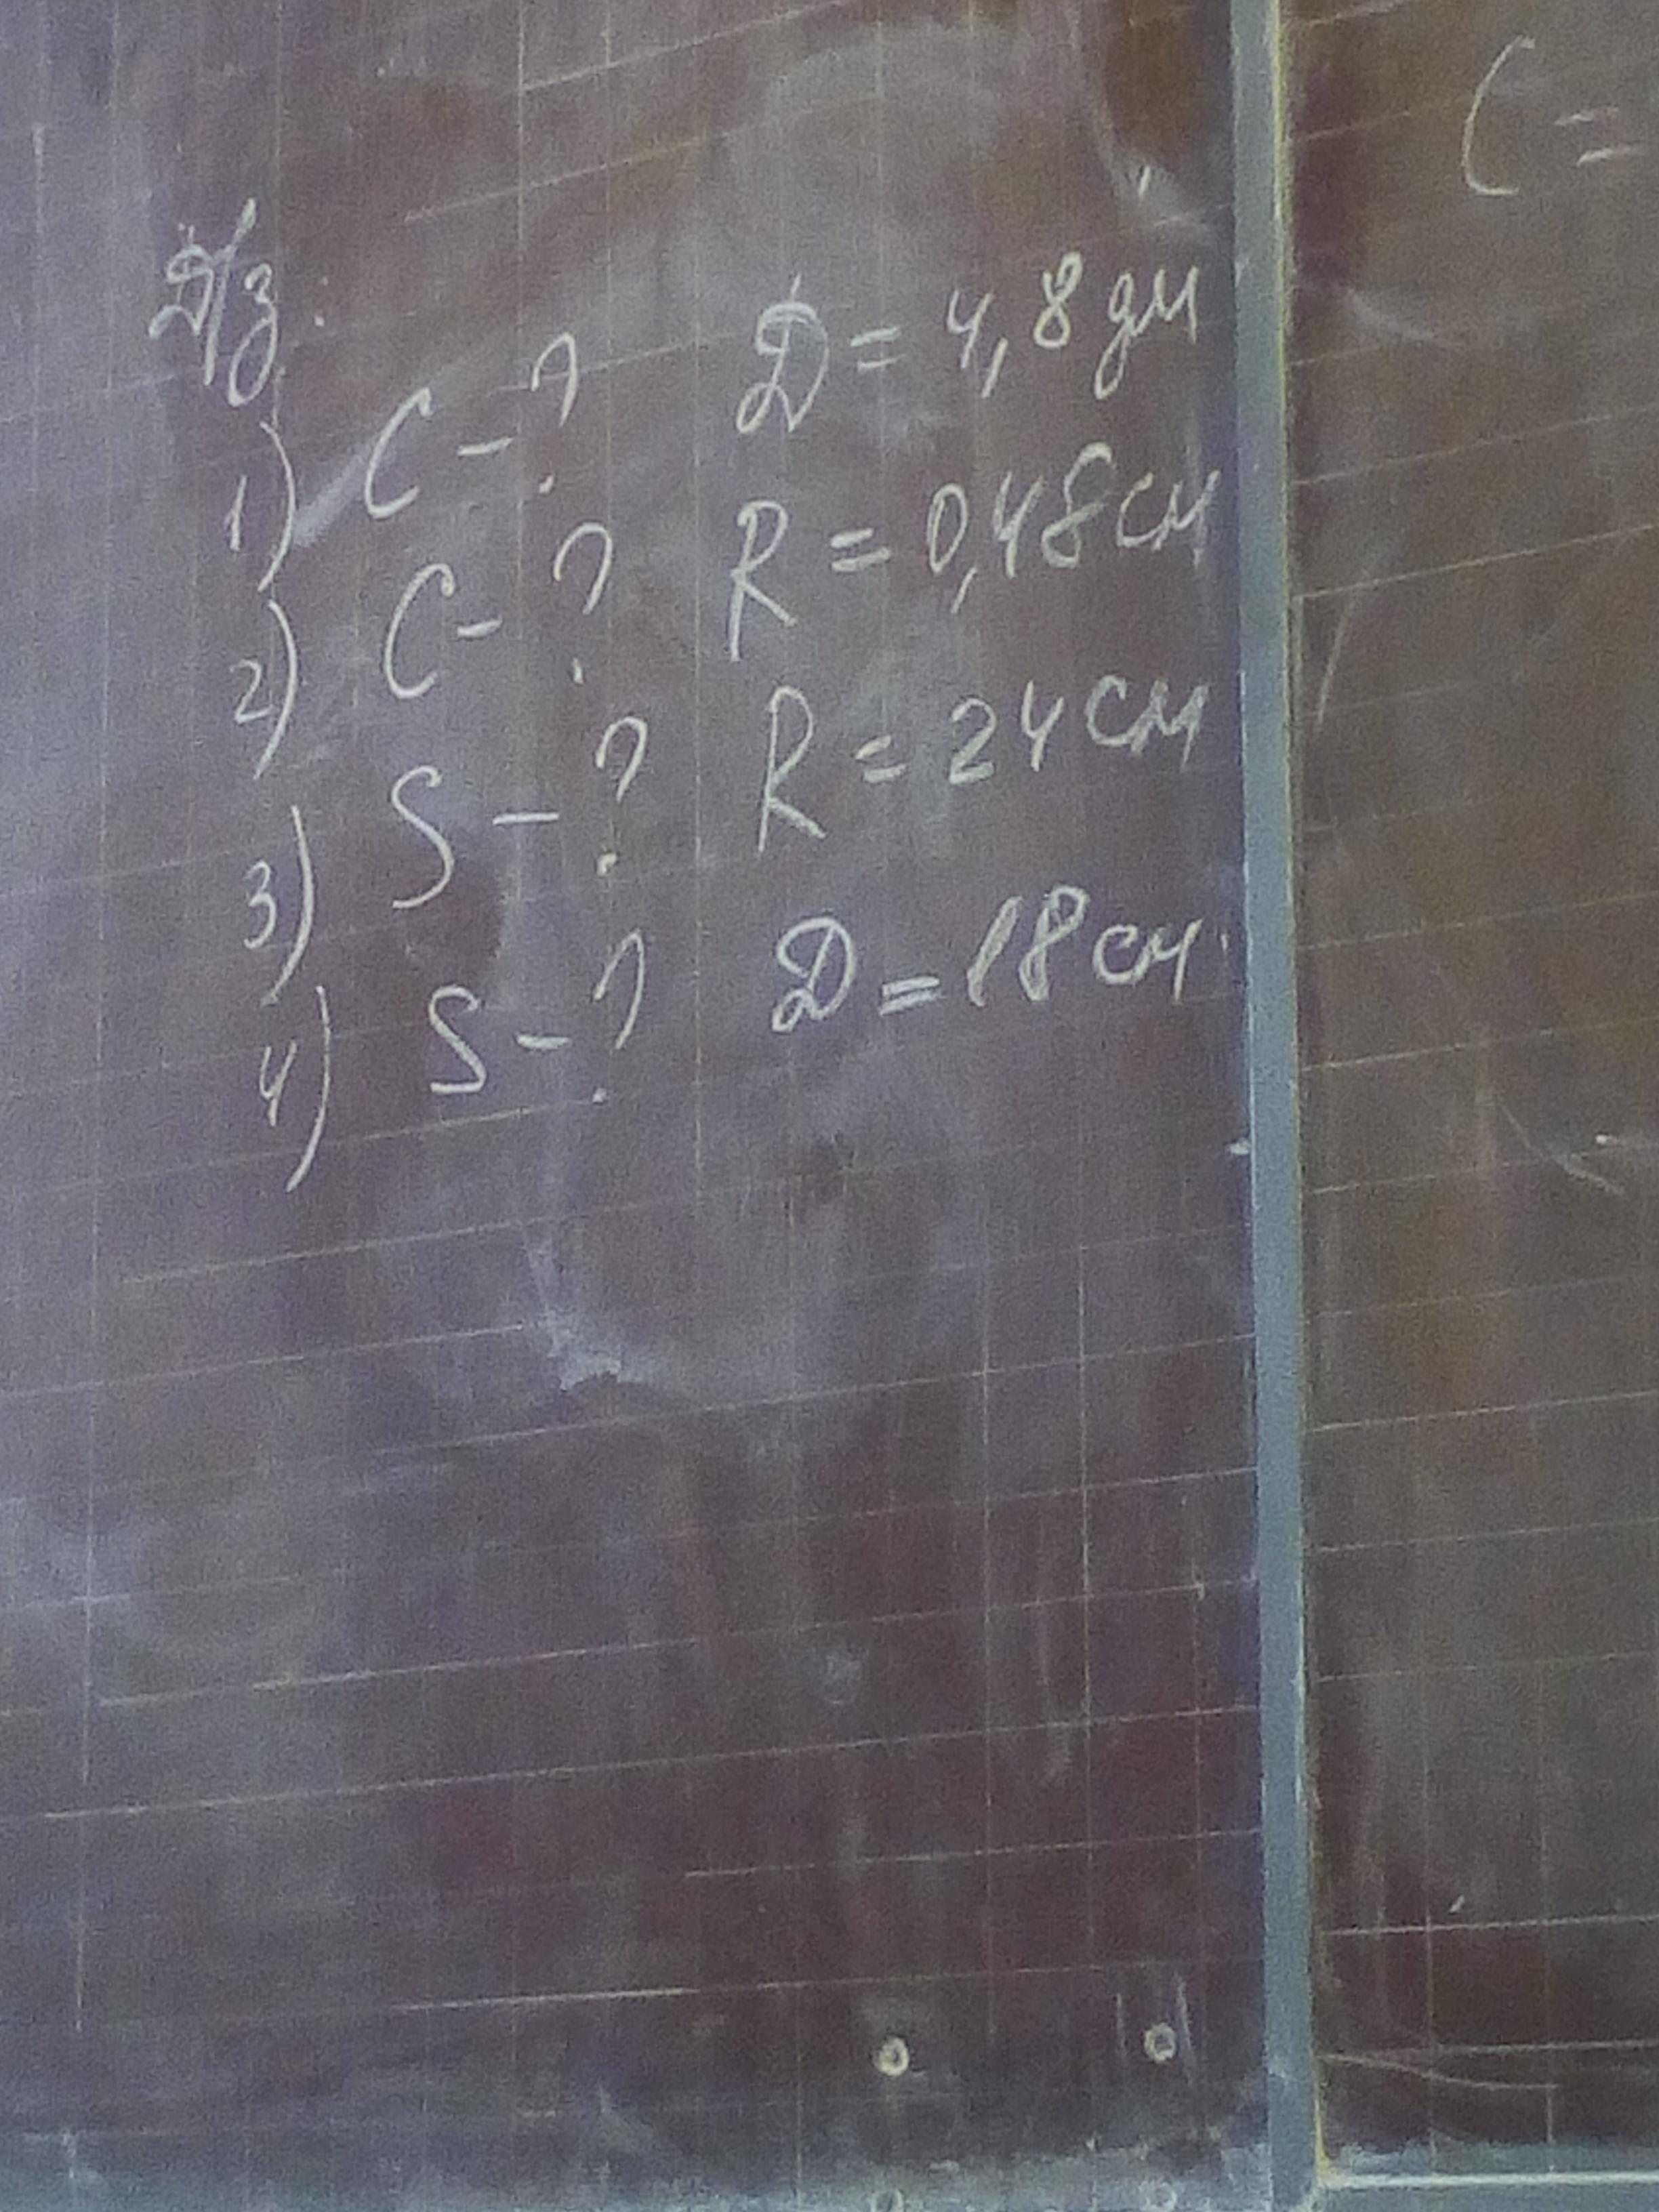 Д/з.
1) C - ? D = 4,8 дм
2) C - ? R = 0,48 см
3) S - ? R = 24 см
4) S - ? D = 18 см.
C =